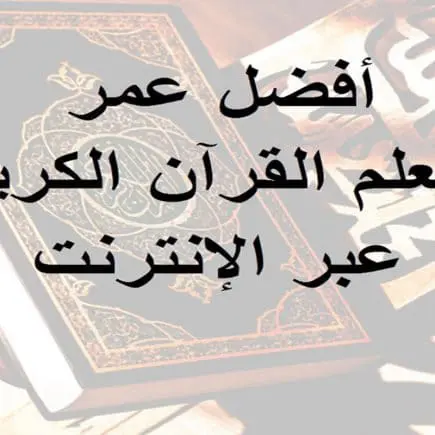 أفضل عمر
علم القرآن الكري
عبر الإنترنت